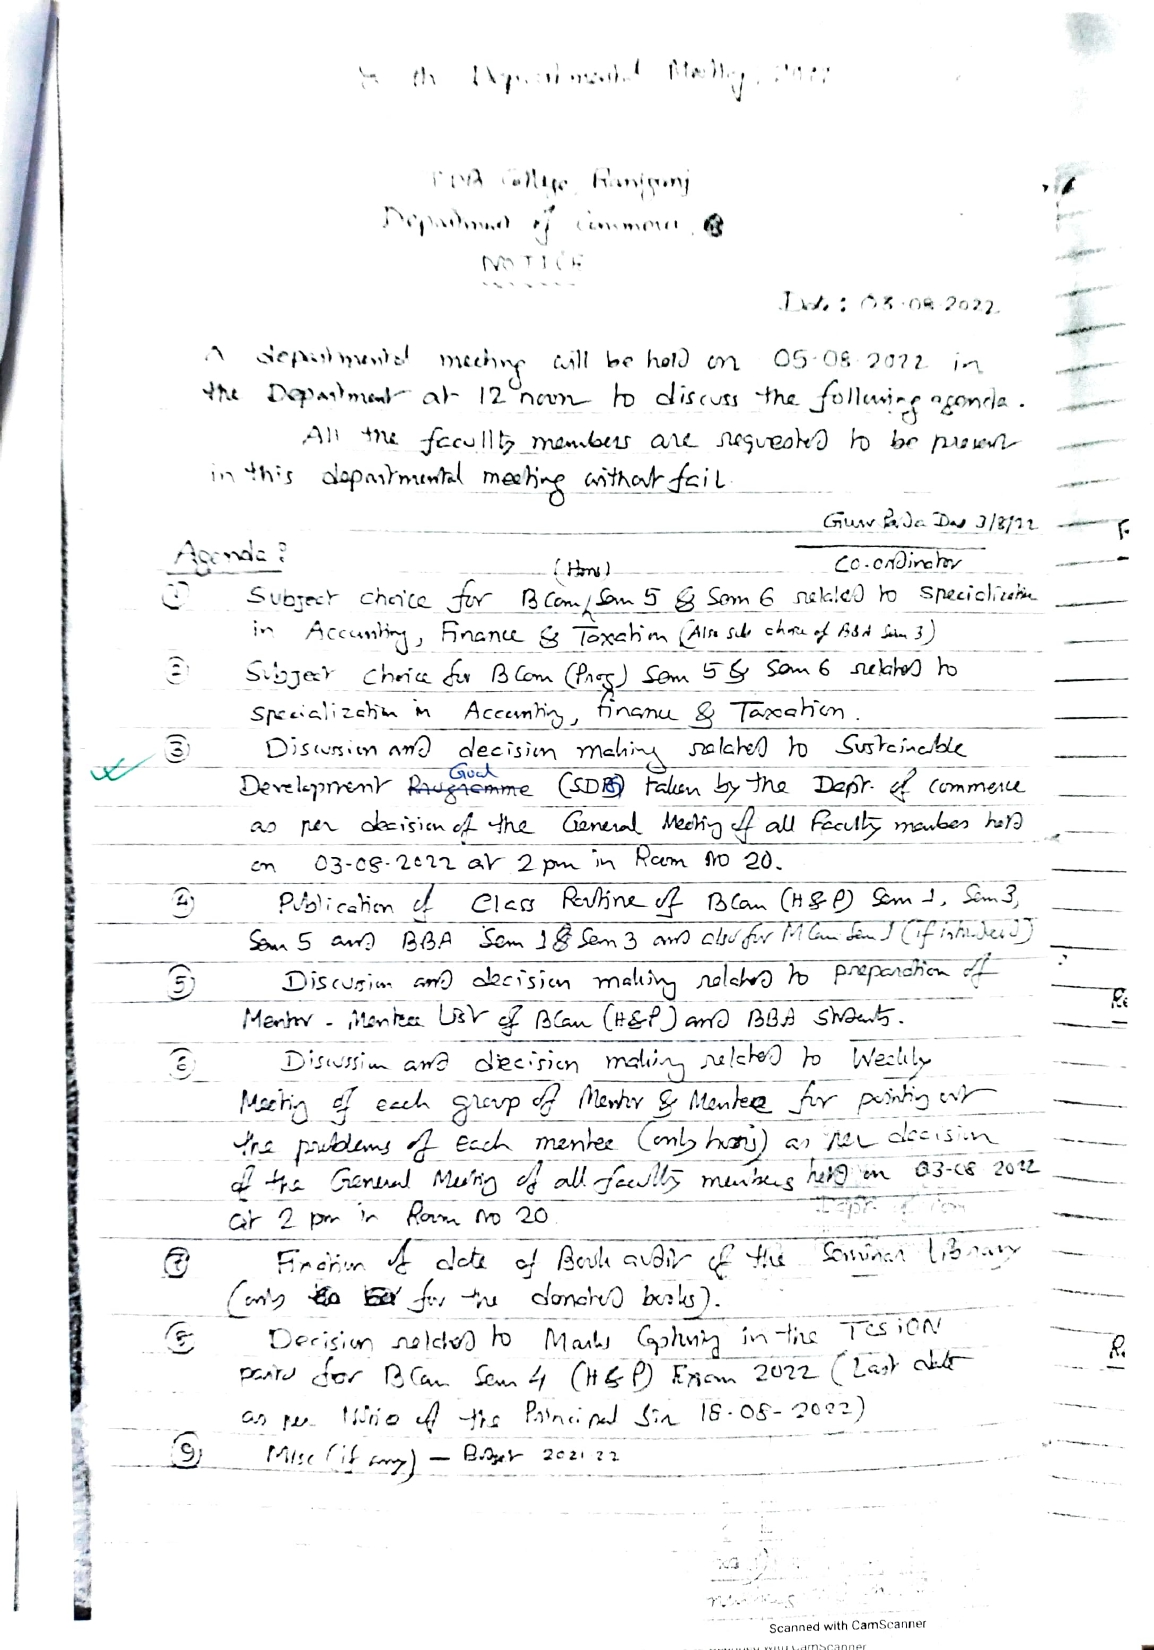 th Departmental Meeting, 2022
College, Raniganj
Department of Commerce.
NOTICE
Date: 03-08-2022
A departmental meeting will be held on 05-08-2022 in
the Department at 12 noon to discuss the following agenda.
All the facullty members are requested to be present
in this departmental meeting without fail.
Guru Pada Das 3/8/22
Co-ordinator
Agenda:
(Hons)
① Subject choice for BCom Sem 5 & Sem 6 related to specialization
in Accounting, Finance & Taxation (Also sub choice of BBA Sem 3)
② Subject choice for BCom (Prog) Sem 5 & Sem 6 related to
specialization in Accounting, Finance & Taxation.
③ Discussion and decision making related to Sustainable
Goal
Development Programme (SDG) taken by the Dept. of commerce
as per decision of the General Meeting of all Faculty members held
on 03-08-2022 at 2 pm in Room No 20.
④ Publication of Class Routine of BCom (H&P) Sem 1, Sem 3,
Sem 5 and BBA Sem 1 & Sem 3 and also for MCom Sem 1 (if introduced)
⑤ Discussion and decision making related to preparation of
Mentor - Mentee List of BCom (H&P) and BBA Students.
⑥ Discussion and decision making related to Weekly
Meeting of each group of Mentor & Mentee for pointing out
the problems of each mentee (only hons) as per decision
of the General Meeting of all faculty members held on 03-08 2022
at 2 pm in Room No 20.
Dept. of Com
⑦ Fixation of date of Book audit of the Seminar Library
(only for the donated books).
⑧ Decision related to Marks Capturing in the TCS iON
portal for BCom Sem 4 (H&P) Exam 2022 (Last date
as per of the Principal Sir 18-08-2022)
⑨ Misc (if any) — Budget 2021 22
Scanned with CamScanner